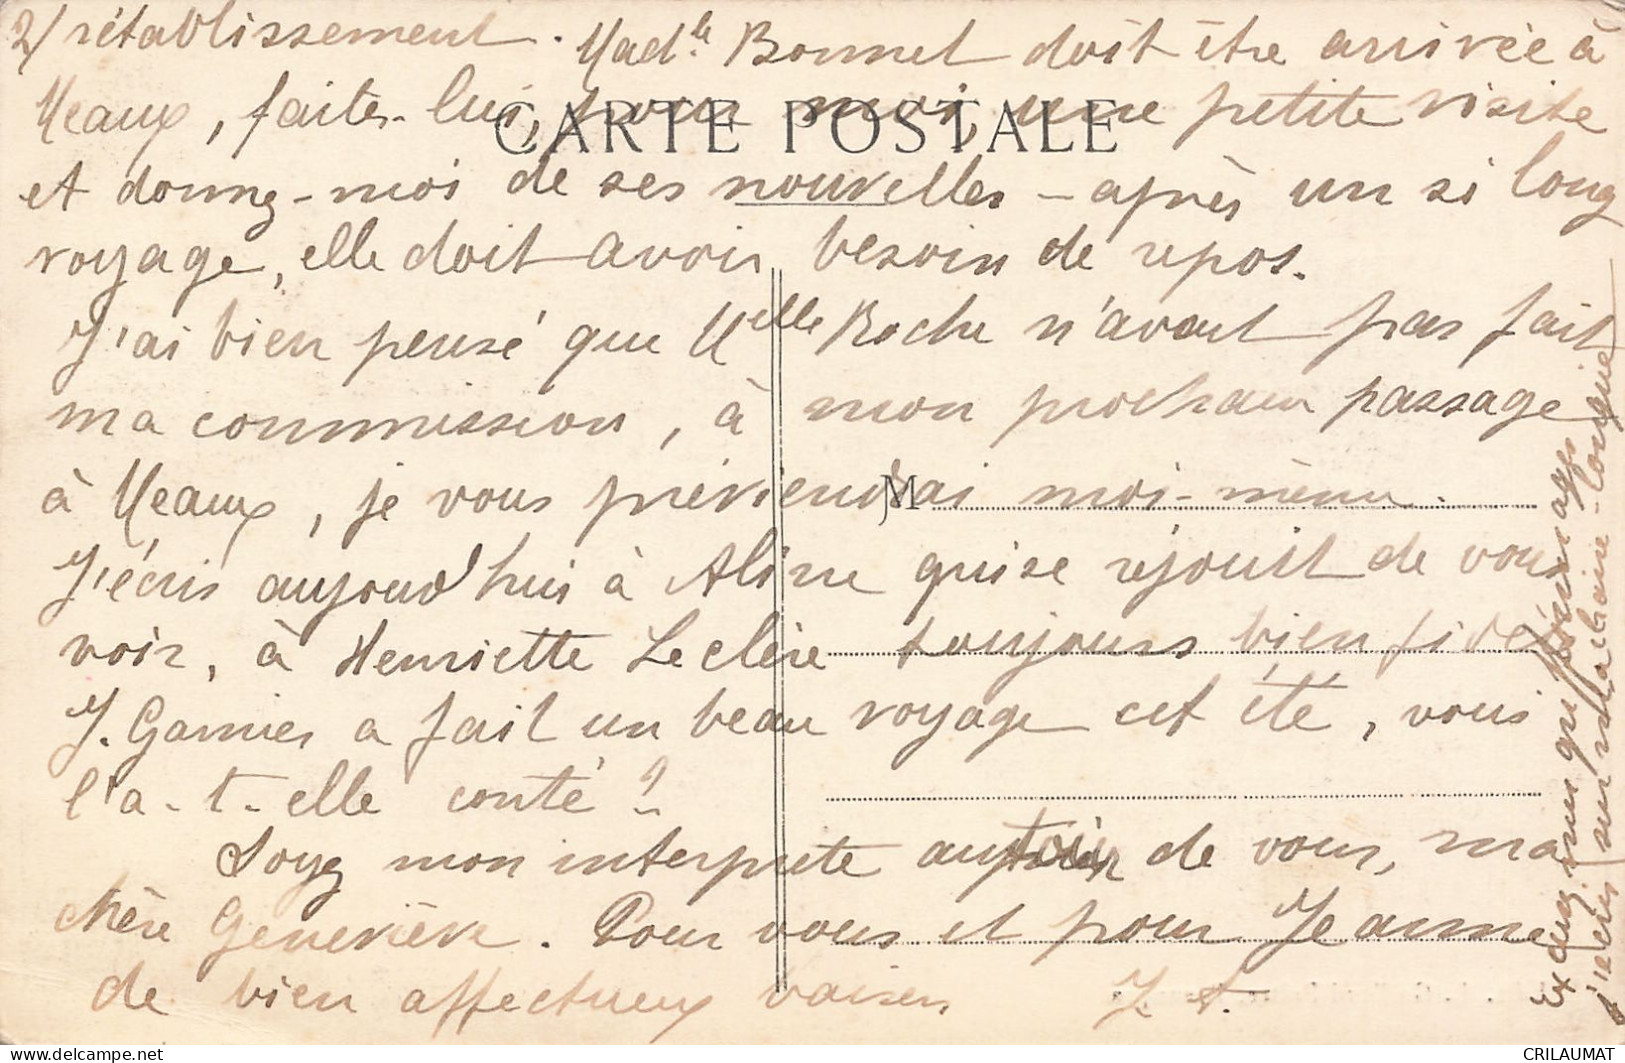 2/ rétablissement. Mad.le Bonnet doit être arrivée à
Meaux, faites-lui, pour moi, une petite visite
CARTE POSTALE
et donnez-moi de ses nouvelles - après un si long
voyage, elle doit avoir besoin de repos.
J'ai bien pensé que Melle Roche n'avait pas fait
ma commission, à mon prochain passage
à Meaux, je vous préviendrai moi-même.
M
J'écris aujourd'hui à Aline qui se réjouit de vous
voir, à Henriette Leclère toujours bien fidèle
J. Garnier a fait un beau voyage cet été, vous
l'a-t-elle conté ?
Soyez mon interprète autour de vous, ma
chère Geneviève. Pour vous et pour Jeanne
de bien affectueux baisers J. A.
Excusez-moi qui
j'écris sur ma chaise-longue
CRILAUMAT